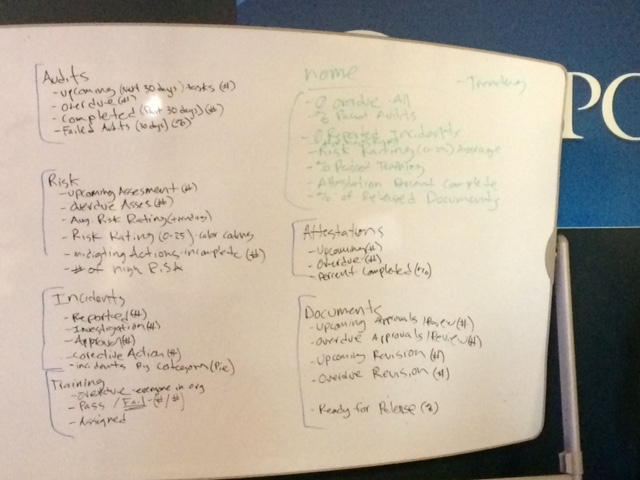 Audits
- upcoming (Next 30 days) tasks (#)
- overdue (#)
- Completed (Past 30 days) (#)
- Failed Audits (30 days) (%)
Risk
- upcoming Assesment (#)
- overdue Asses (#)
- Avg. Risk Rating (trending)
- Risk Rating (0-25) - color
- mitigating Actions incomplete (#)
- # of High Risk
Incidents
- Reported (#)
- Investigation (#)
- Approval (#)
- corective Action (#)
- incidents By category (Pie)
Training
- overdue - everyone in org
- Pass / Fail - (#/#)
- Assigned
home
- Trending
- overdue - All
- % Passed Audits
- Reported Incidents
- Risk Rating (0-25) Average
- % Passed Training
- Attestation Percent Complete
- % of Released Documents
Attestations
- Upcoming (#)
- Overdue (#)
- Percent Completed (%)
Documents
- Upcoming Approvals / Review (#)
- overdue Approvals / Review (#)
- Upcoming Revision (#)
- Overdue Revision (#)
- Ready for Release (%)
PO